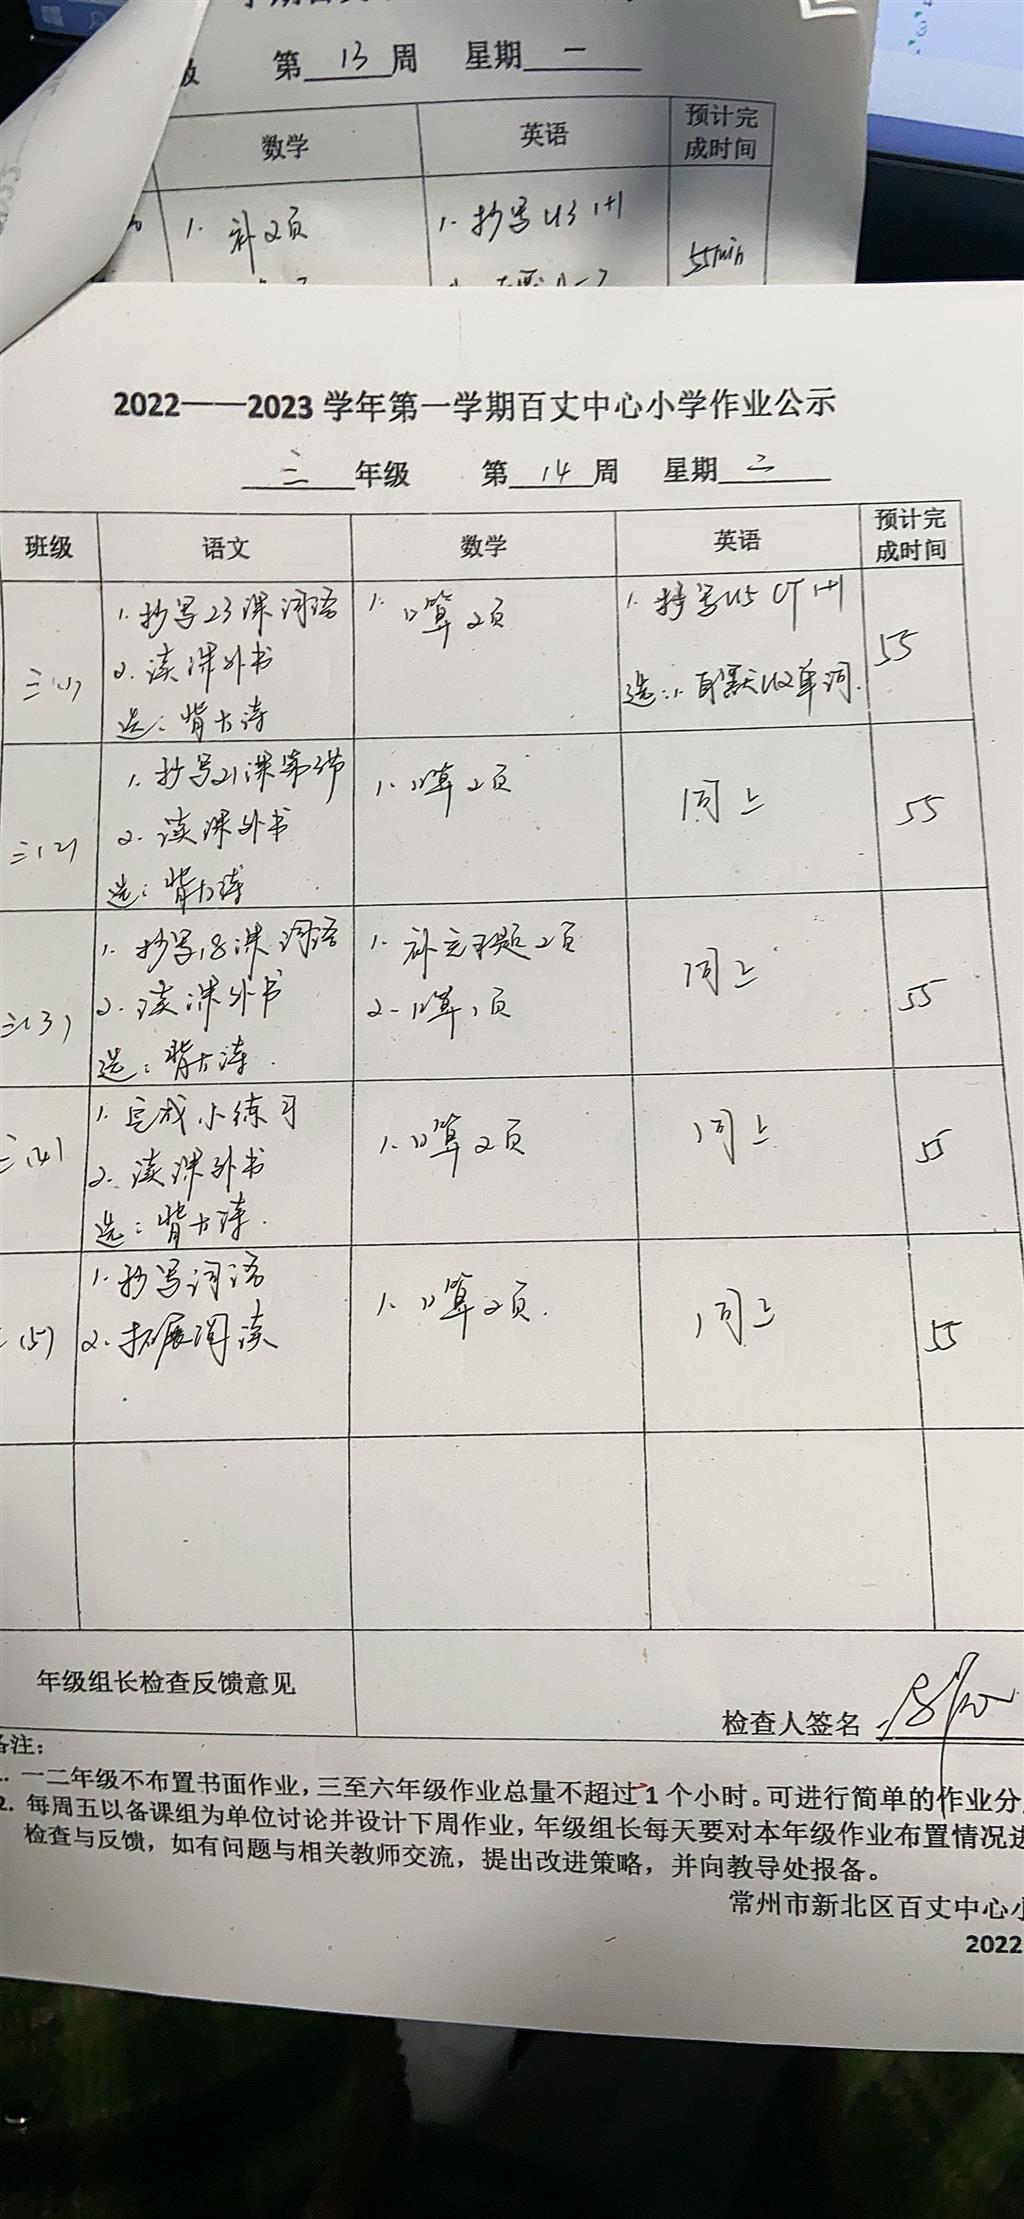 第 13 周 星期 一
数学 英语 预计完
成时间
1. 补2页 1. 抄写U3 1+1 55min
2022——2023学年第一学期百丈中心小学作业公示
三 年级 第 14 周 星期 二
班级 语文 数学 英语 预计完
成时间
三(1)
1. 抄写23课词语
2. 读课外书
选：背古诗
1. 口算2页
1. 抄写U5 CT 1+1
选：1. 自默U2单词.
55
三(2)
1. 抄写21课第3节
2. 读课外书
选：背古诗
1. 口算2页
同上
55
三(3)
1. 抄写18课词语
2. 读课外书
选：背古诗.
1. 补充习题2页
2. 口算1页
同上
55
三(4)
1. 完成小练习
2. 读课外书
选：背古诗.
1. 口算2页
同上
55
(5)
1. 抄写词语
2. 拓展阅读
1. 口算2页.
同上
55
年级组长检查反馈意见
检查人签名
备注：
1. 一二年级不布置书面作业，三至六年级作业总量不超过1个小时。可进行简单的作业分
2. 每周五以备课组为单位讨论并设计下周作业，年级组长每天要对本年级作业布置情况进
检查与反馈，如有问题与相关教师交流，提出改进策略，并向教导处报备。
常州市新北区百丈中心小
2022